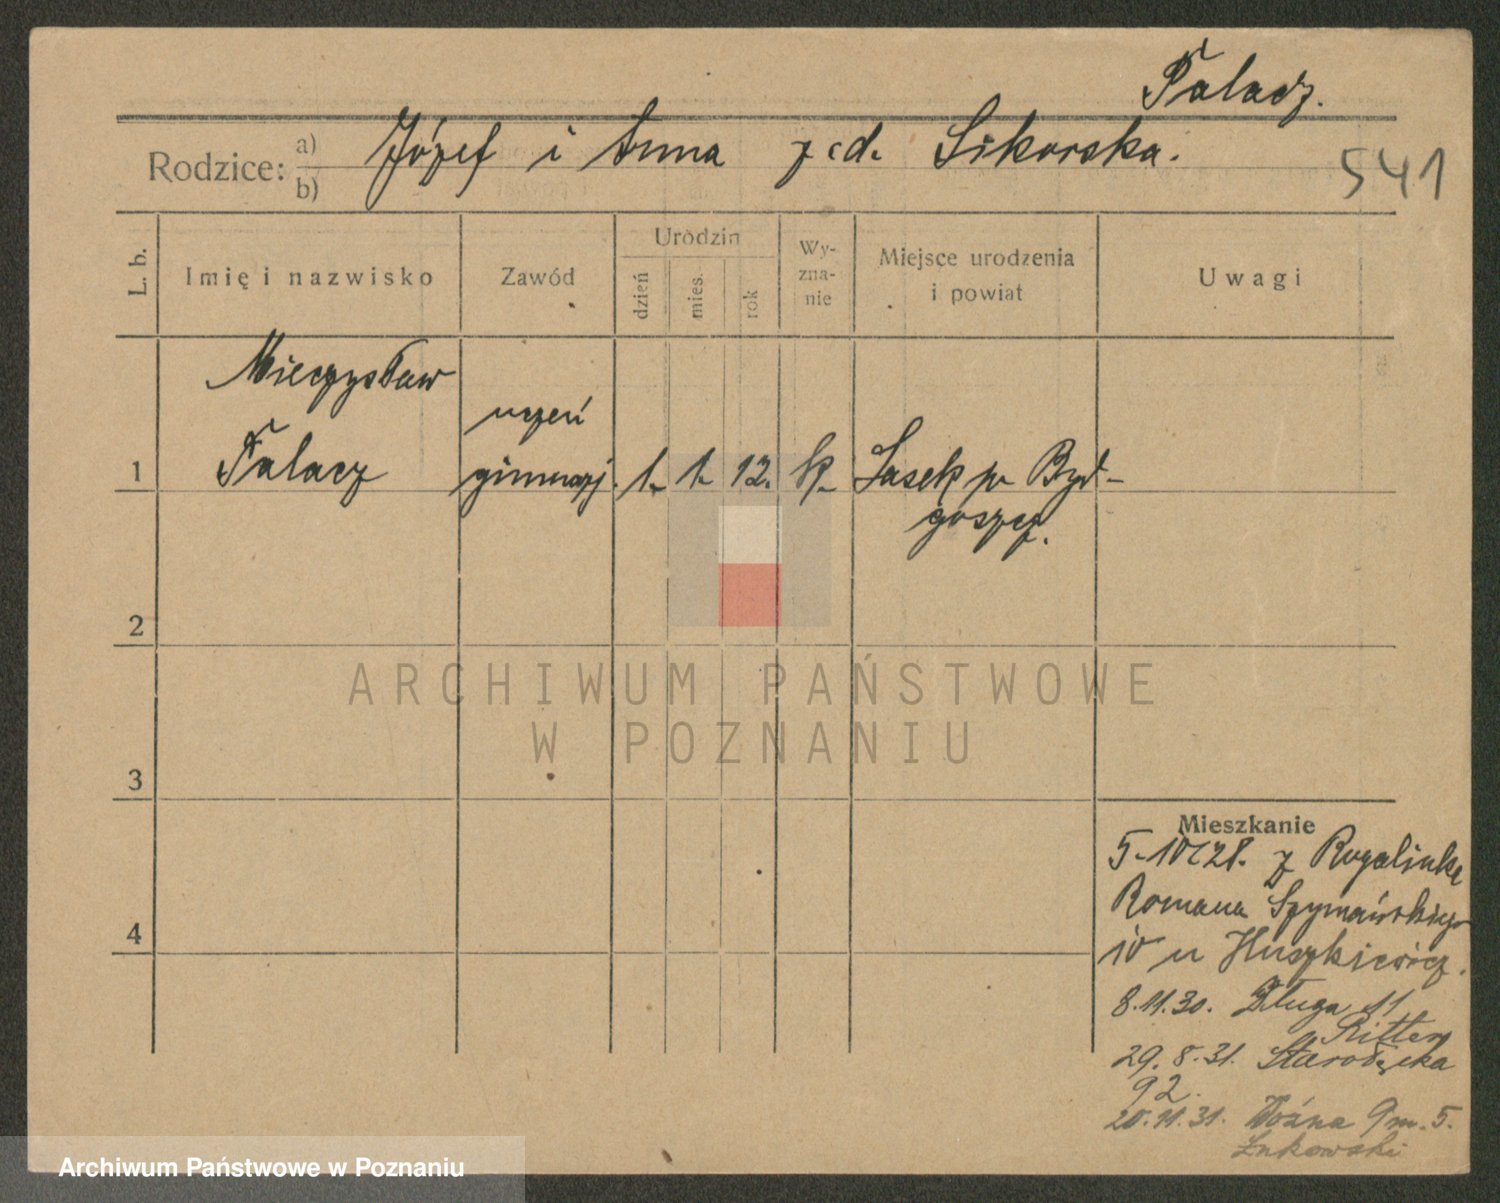 Pałacz.
Rodzice: a) b) Józef i Anna z d. Sikorska.
541
L. b. Imię i nazwisko Zawód Urodzin dzień mies. rok Wyznanie Miejsce urodzenia i powiat Uwagi
Mieczysław
uczeń
1 Pałacz gimnazj. 1. 1. 12. k. Lasek p. Byd-
goszcz.
2
3
4
Mieszkanie
5.10.28. z Rogalinka
Romana Szymańskiego
10 u Huszkiewicz.
8.11.30. Długa 11
Ritter
29.8.31. Starołęcka
92.
20.11.31. Woźna 9 m. 5.
Łukowski
ARCHIWUM PAŃSTWOWE
W POZNANIU
Archiwum Państwowe w Poznaniu